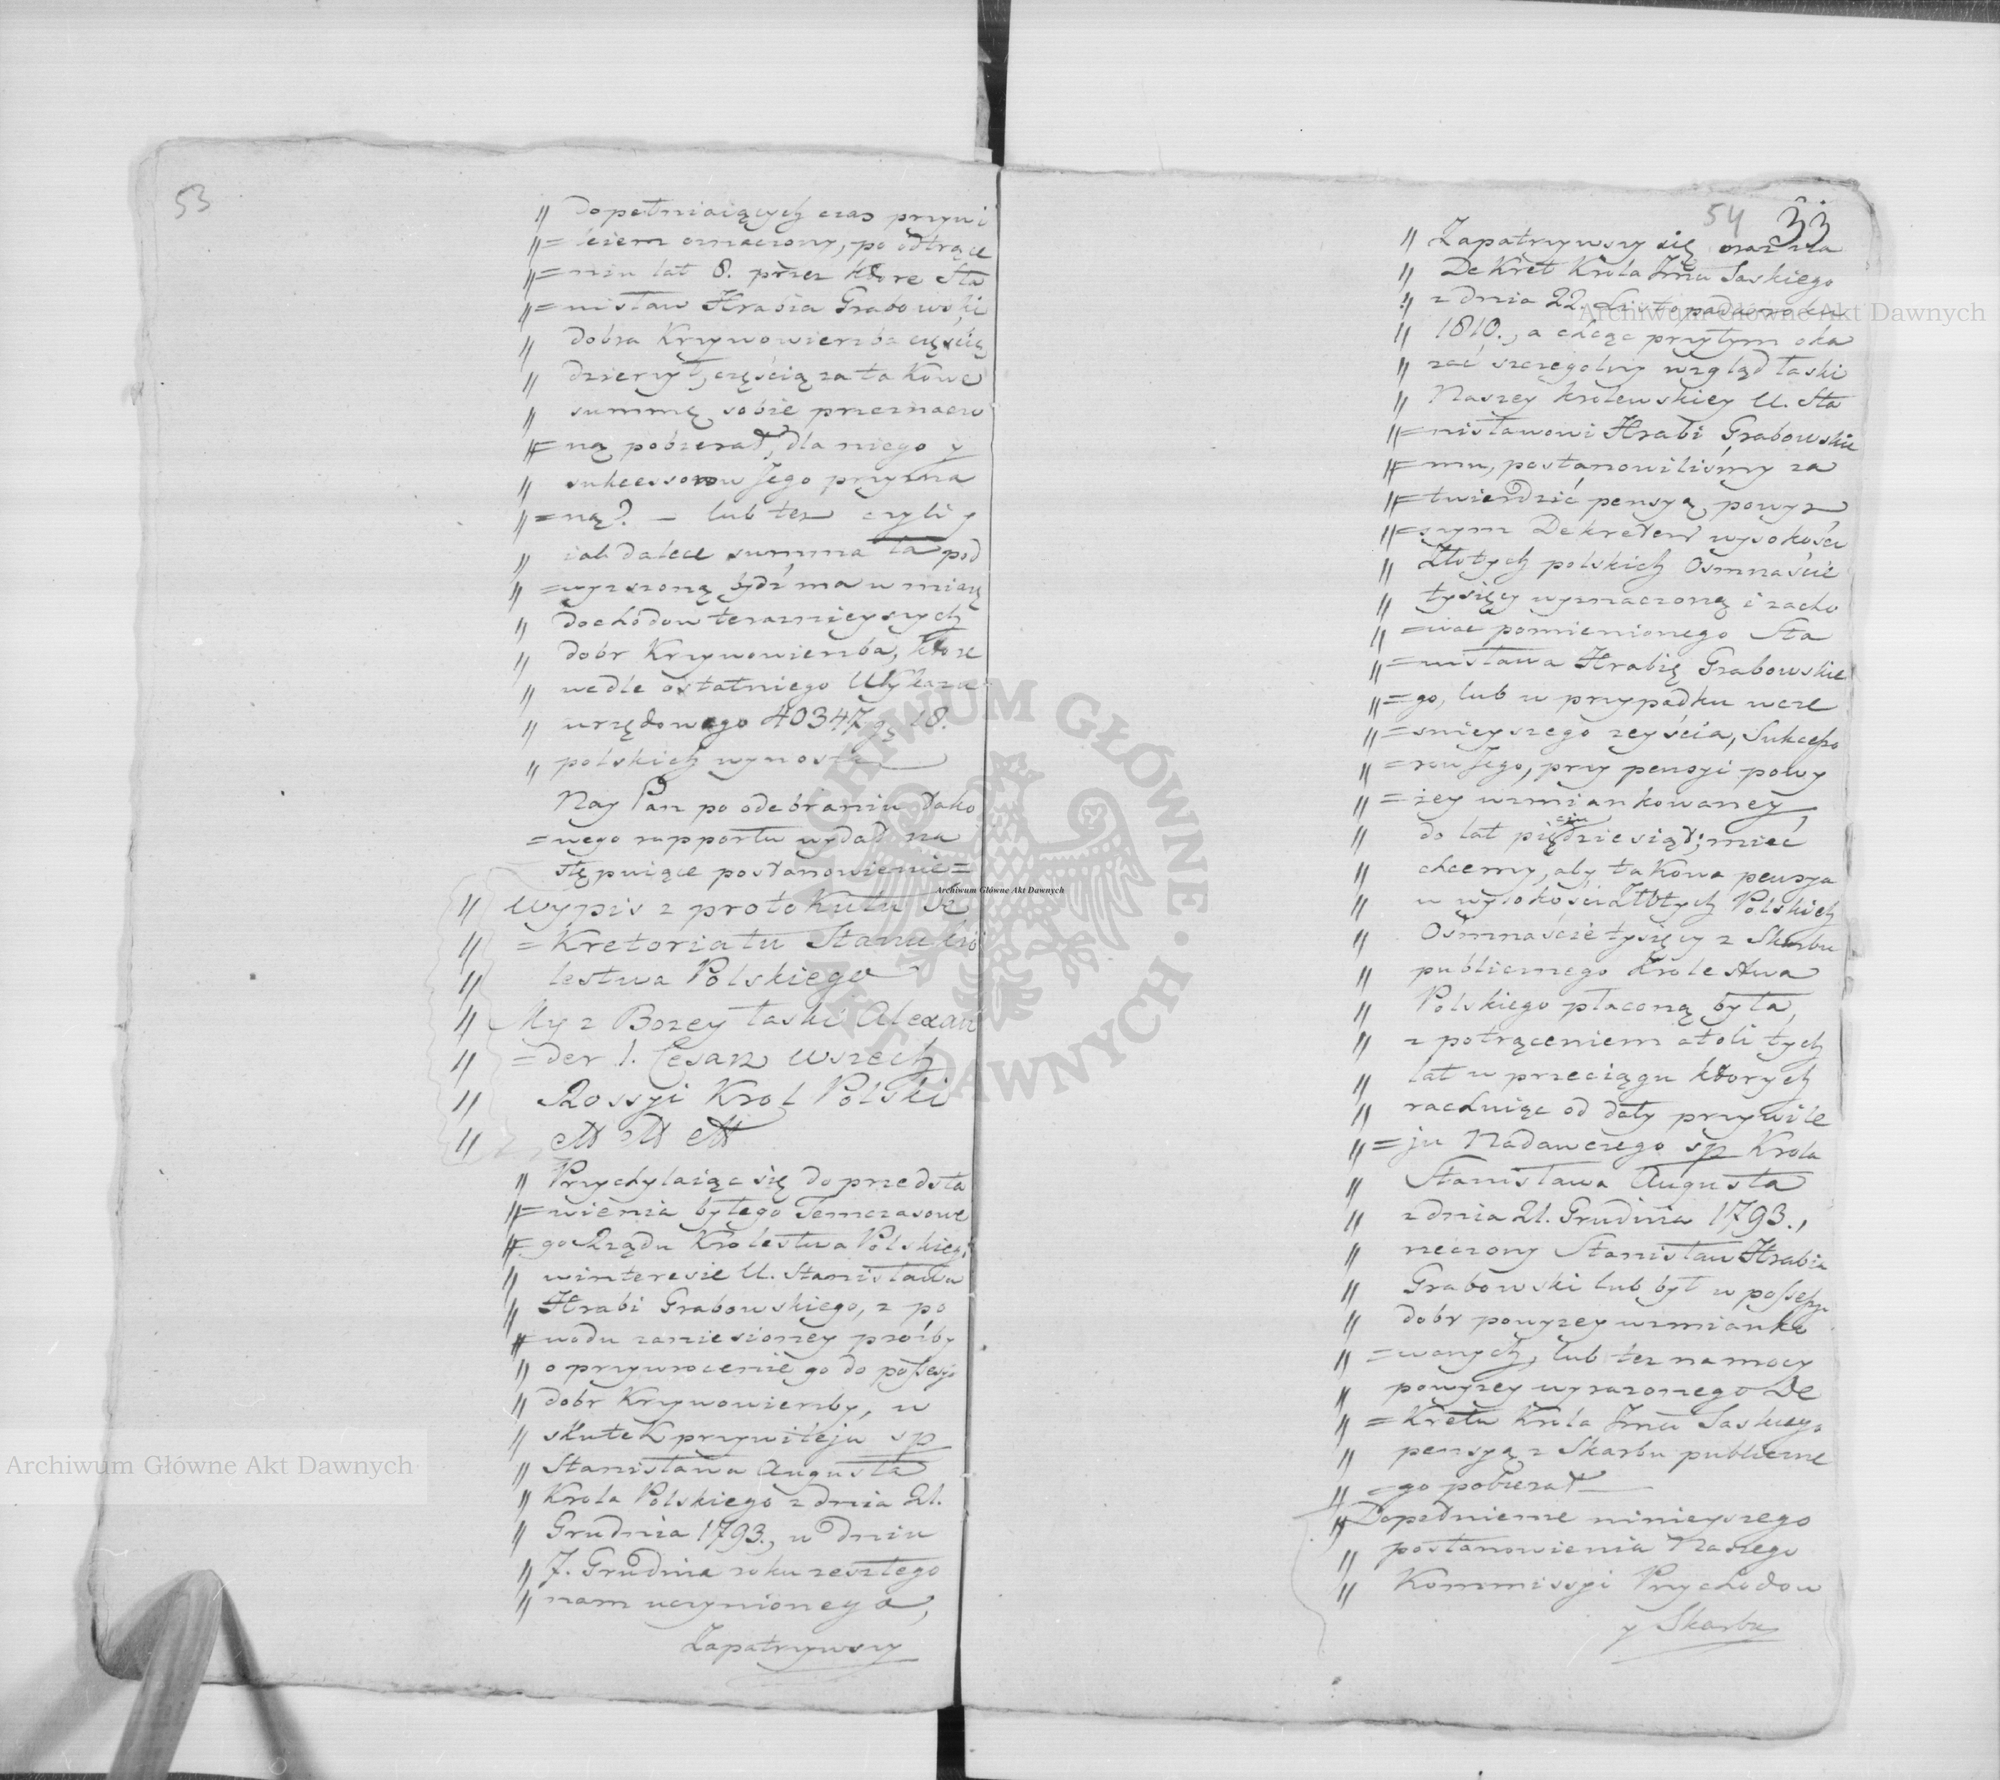 53
" dopełniaiących czas przywi
" =leiem oznaczony, po odtrące
" =niu lat 8. przez ktore Sta
" =nisław Hrabia Grabowski
" dobra Krzywowierzba częścią
" dzierżył, częścią za takowe
" summę sobie przeznaczo
" =ną pobierał, dla niego y
" sukcessorow Jego przyzna
" =ną? — lub też czyli y
" iak dalece summa ta pod
" =wyższoną bydź ma w miarę
" dochodow teraznieyszych
" dobr Krzywowierzba, ktore
" wedle ostatniego Wykazu
" urzędowego 40347 g. 18.
" polskich wynoszą
Nay Pan po odebraniu tako
=wego rapportu wydał na
stępuiące postanowienie=
" Wypis z protokułu Se
" =kretoriatu Stanu Kró
" lestwa Polskiego
" My z Bozey łaski Alexan
" =der I. Cesarz wszech
" Rossyi Krol Polski
" ett ett ett
" Przychylaiąc się do przedsta
" =wienia byłego Temczasowe
" =go Rządu Krolestwa Polskiego
" w interesie U. Stanisława
" Hrabi Grabowskiego, z po
" =wodu zaniesioney prośby
" o przywrocenie go do possesyi
" dobr Krzywowierzby, w
" skutek przywileju sp
" Stanisława Augusta
" Krola Polskiego z dnia 21.
" Grudnia 1793., w dniu
" 7. Grudnia roku zeszłego
" nam uczynionego,
Zapatrzywszy
54 33
" Zapatrzywszy się oraz na
" Dekret Krola Jmci Saskiego
" z dnia 22. Listopada roku
" 1810., a chcąc przytym oka
" zać szczegolny wzgląd łaski
" Naszey krolewskiey U. Sta
" =nisławowi Hrabi Grabowskie
" =mu, postanowiliśmy za
" =twierdzić pensyą, powyż
" =szym Dekretem wysokości
" Złotych polskich Osmnaście
" tysięcy wyznaczoną i zacho
" =wać pomienionego Sta
" =nisława Hrabię Grabowskie
" =go, lub w przypadku wcze
" =snieyszego zeyścia, Sukcesso
" =row Jego, przy pensyi powy
" =żey wzmiankowaney
" do lat pięciudziesiąt; mieć
" chcemy, aby takowa pensya
" w wysokości Złotych Polskich
" Osmnaście tysięcy z Skarbu
" publicznego Krolestwa
" Polskiego płaconą była,
" z potrąceniem atoli tych
" lat w przeciągu ktorych
" rachuiąc od daty przywile
" =ju Nadawczego sp Krola
" Stanisława Augusta
" z dnia 21. Grudnia 1793.,
" rzeczony Stanisław Hrabia
" Grabowski lub był w possessyi
" dobr powyżey wzmianko
" =wanych, lub też na mocy
" powyżey wyrażonego De
" =kretu Krola Jmci Saskiego
" pensyą z Skarbu publiczne
" =go pobierał —
" Dopełnienie ninieyszego
" postanowienia Naszego
" Kommissyi Przychodow
y Skarbu
Archiwum Główne Akt Dawnych
Archiwum Główne Akt Dawnych
Archiwum Główne Akt Dawnych
ARCHIWUM GŁÓWNE · AKT DAWNYCH ·